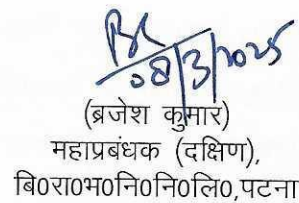 08/3/2025
(ब्रजेश कुमार)
महाप्रबंधक (दक्षिण),
बि0रा0भ0नि0नि0लि0,पटना